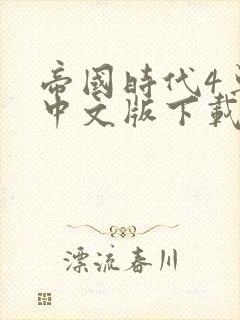 帝國時代4
中文版下載
漂流春川